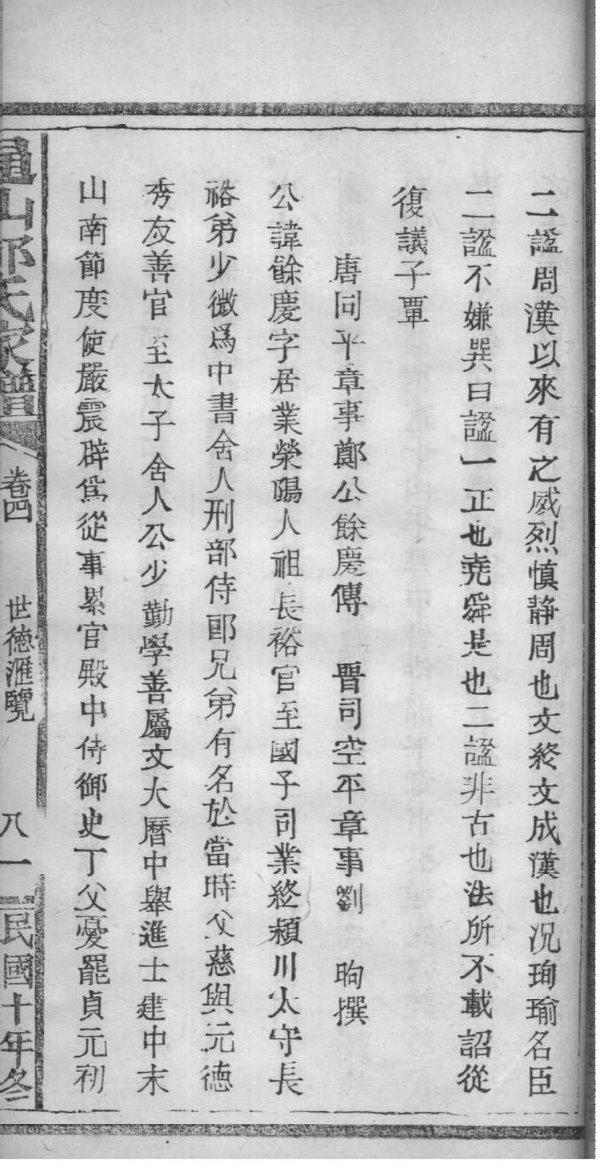 二諡周漢以來有之威烈慎静周也文終文成漢也况珣瑜名臣
二諡不嫌巽曰諡一正也堯舜是也二諡非古也法所不載詔從
復議子覃
唐同平章事鄭公餘慶傳 晋司空平章事劉 昫撰
公諱餘慶字居業滎陽人祖長裕官至國子司業終頴川太守長
裕弟少微爲中書舍人刑部侍郎兄弟有名於當時父慈與元德
秀友善官至太子舍人公少勤學善屬文大曆中舉進士建中末
山南節度使嚴震辟爲從事累官殿中侍御史丁父憂罷貞元初
山鄭氏家譜 卷四 世德滙覽 八一 民國十年冬